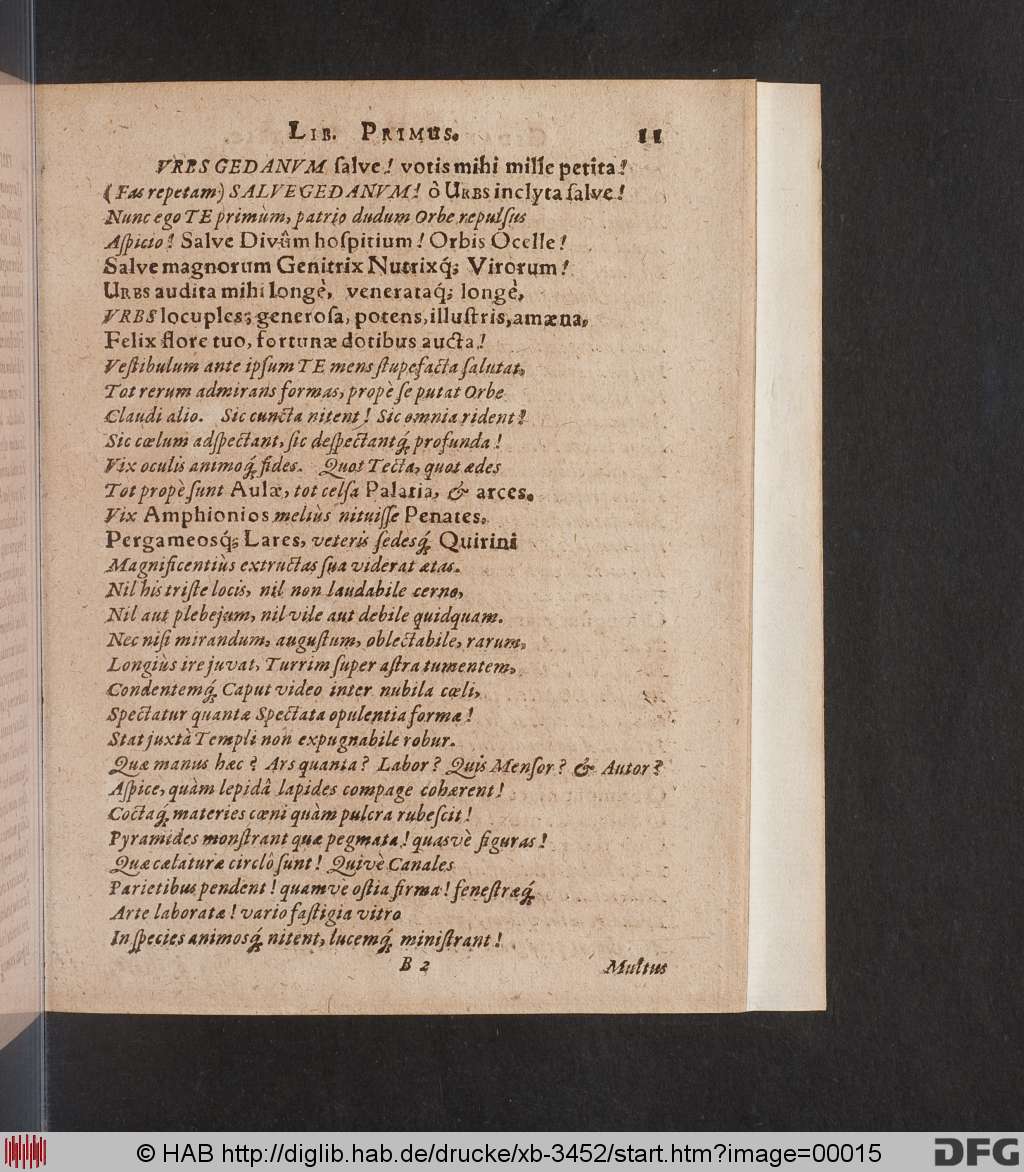 LIB. PRIMUS. 11
VRBS GEDANVM ſalve! votis mihi mille petita!
(Fas repetam) SALVE GEDANVM! ô URBS inclyta ſalve!
Nunc ego TE primùm, patrio dudum Orbe repulſus
Aſpicio! Salve Divûm hoſpitium! Orbis Ocelle!
Salve magnorum Genitrix Nutrixq́; Virorum!
URBS audita mihi longè, venerataq́; longè,
VRBS locuples; generoſa, potens, illuſtris, amæna,
Felix flore tuo, fortunæ dotibus aucta!
Veſtibulum ante ipſum TE mens ſtupefacta ſalutat,
Tot rerum admirans formas, propè ſe putat Orbe
Claudi alio. Sic cuncta nitent! Sic omnia rident!
Sic cœlum adſpectant, ſic deſpectantq́; profunda!
Vix oculis animoq́; fides. Quot Tecta, quot ædes
Tot propè ſunt Aulæ, tot celſa Palatia, & arces.
Vix Amphionios meliùs nituiſſe Penates,
Pergameosq́; Lares, veteris ſedesq́; Quirini
Magnificentiùs extructas ſua viderat ætas.
Nil his triſte locis, nil non laudabile cerno,
Nil aut plebejum, nil vile aut debile quidquam.
Nec niſi mirandum, auguſtum, oblectabile, rarum,
Longiùs ire juvat, Turrim ſuper aſtra tumentem,
Condentemq́; Caput video inter nubila cœli,
Spectatur quantæ Spectata opulentia formæ!
Stat juxtà Templi non expugnabile robur.
Quæ manus hæc? Ars quanta? Labor? Quis Menſor? & Autor?
Aſpice, quàm lepidâ lapides compage cohærent!
Coctaq́; materies cœni quàm pulcra rubeſcit!
Pyramides monſtrant quæ pegmata! quasvè figuras!
Quæ cælaturæ circlô ſunt! Quivè Canales
Parietibus pendent! quamve oſtia firma! feneſtræq́;
Arte laboratæ! vario faſtigia vitro
In ſpecies animosq́; nitent, lucemq́; miniſtrant!
B 2 Multus
© HAB http://diglib.hab.de/drucke/xb-3452/start.htm?image=00015 DFG